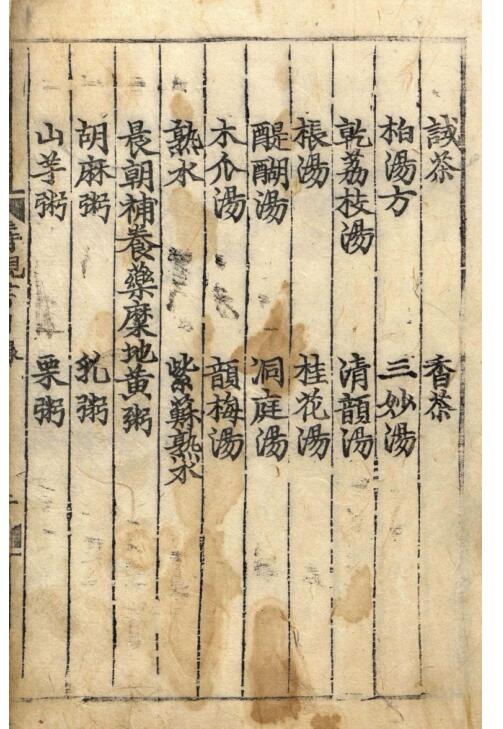 誡茶 香茶
柏湯方 三妙湯
乾荔枝湯 清韻湯
棖湯 桂花湯
醍醐湯 洞庭湯
木瓜湯 韻梅湯
熟水 紫蘇熟水
晨朝補養藥糜地黃粥
胡麻粥 乳粥
山芋粥 栗粥